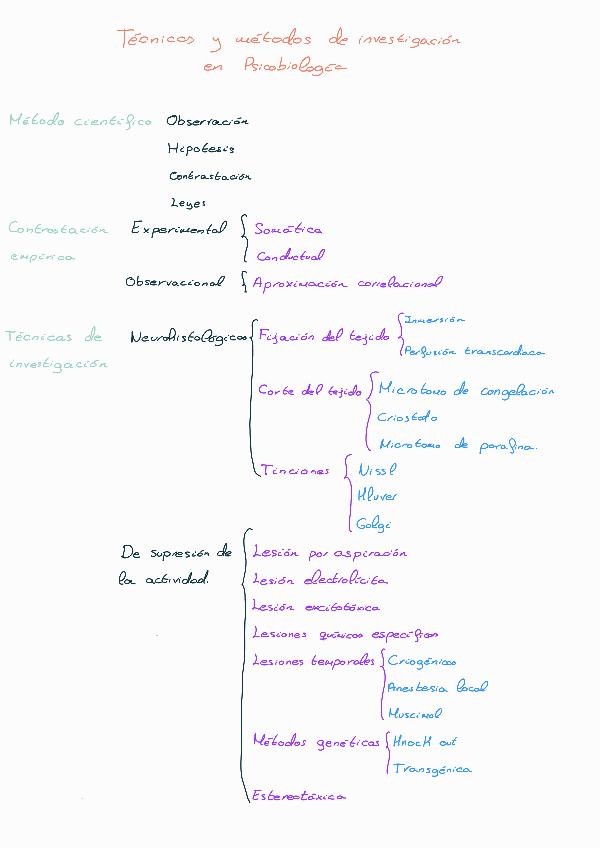 Técnicas y métodos de investigación
en Psicobiología
Método científico Observación
Hipotesis
Contrastación
Leyes
Contrastación Experimental Somática
empírica Conductual
Observacional Aproximación correlacional
Técnicas de Neurohistológicas Fijación del tejido Inmersión
investigación Perfusión transcardiaca
Corte del tejido Microtomo de congelación
Criostato
Microtomo de parafina.
Tinciones Nissl
Kluver
Golgi
De supresión de Lesión por aspiración
la actividad. Lesión electrolícita
Lesión excitotóxica
Lesiones químicas específicas
Lesiones temporales Criogénicas
Anestesia local
Muscimol
Métodos genéticas Knock out
Transgénica
Estereotóxica